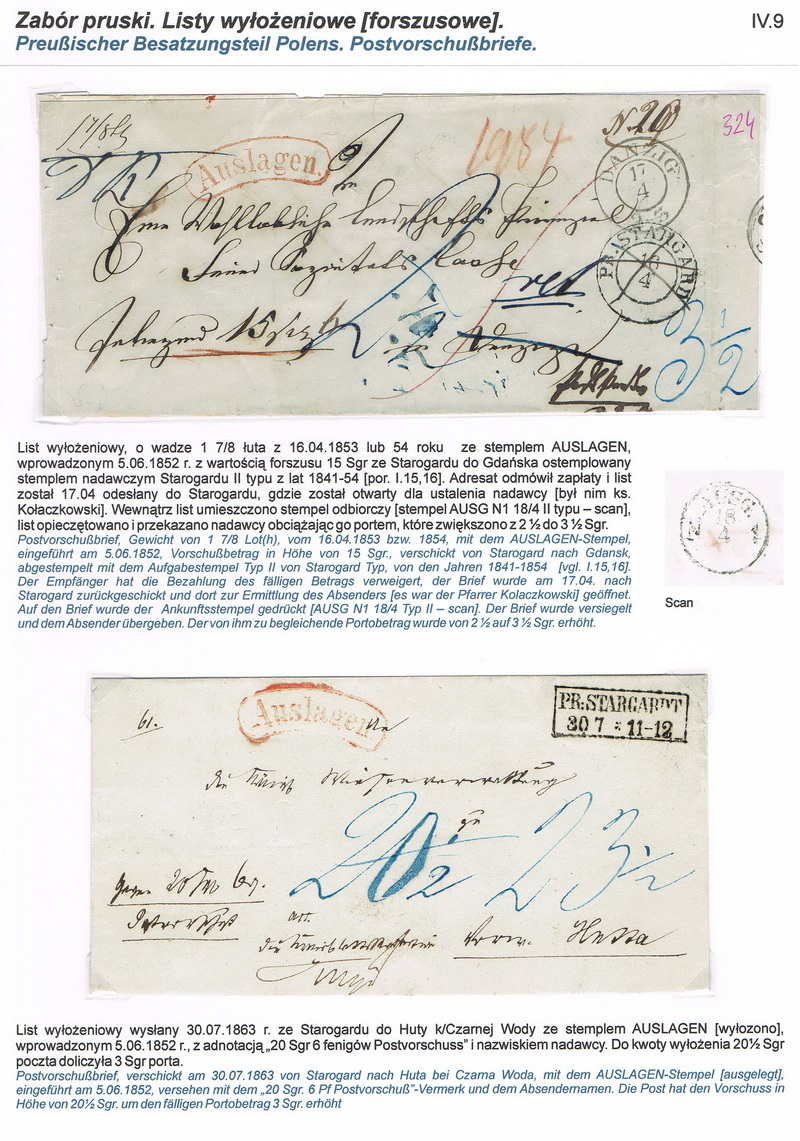 Zabór pruski. Listy wyłożeniowe [forszusowe].
IV.9
Preußischer Besatzungsteil Polens. Postvorschußbriefe.
17/8 Lt
Auslagen.
1984
N. 29
324
DANZIG
17
4
PR: STARGARDT
18
4
Eine Wohllöbliche
ret
15 Sgr
3 ½
List wyłożeniowy, o wadze 1 7/8 łuta z 16.04.1853 lub 54 roku ze stemplem AUSLAGEN,
wprowadzonym 5.06.1852 r. z wartością forszusu 15 Sgr ze Starogardu do Gdańska ostemplowany
stemplem nadawczym Starogardu II typu z lat 1841-54 [por. I.15,16]. Adresat odmówił zapłaty i list
został 17.04 odesłany do Starogardu, gdzie został otwarty dla ustalenia nadawcy [był nim ks.
Kołaczkowski]. Wewnątrz listu umieszczono stempel odbiorczy [stempel AUSG N1 18/4 II typu – scan],
list opieczętowano i przekazano nadawcy obciążając go portem, które zwiększono z 2 ½ do 3 ½ Sgr.
Postvorschußbrief, Gewicht von 1 7/8 Lot(h), vom 16.04.1853 bzw. 1854, mit dem AUSLAGEN-Stempel,
eingeführt am 5.06.1852, Vorschußbetrag in Höhe von 15 Sgr., verschickt von Starogard nach Gdansk,
abgestempelt mit dem Aufgabestempel Typ II von Starogard Typ, von den Jahren 1841-1854 [vgl. I.15,16].
Der Empfänger hat die Bezahlung des fälligen Betrags verweigert, der Brief wurde am 17.04. nach
Starogard zurückgeschickt und dort zur Ermittlung des Absenders [es war der Pfarrer Kolaczkowski] geöffnet.
Auf den Brief wurde der Ankunftsstempel gedrückt [AUSG N1 18/4 Typ II – scan]. Der Brief wurde versiegelt
und dem Absender übergeben. Der von ihm zu begleichende Portobetrag wurde von 2 ½ auf 3 ½ Sgr. erhöht.
AUSG.
18
4
Scan
Auslagen
PR: STARGARDT
30 7 : 11-12
61.
An
die Königl Wiesenverwaltung
zu
20½ 23½
Huta
List wyłożeniowy wysłany 30.07.1863 r. ze Starogardu do Huty k/Czarnej Wody ze stemplem AUSLAGEN [wyłozono],
wprowadzonym 5.06.1852 r., z adnotacją „20 Sgr 6 fenigów Postvorschuss” i nazwiskiem nadawcy. Do kwoty wyłożenia 20½ Sgr
poczta doliczyła 3 Sgr porta.
Postvorschußbrief, verschickt am 30.07.1863 von Starogard nach Huta bei Czarna Woda, mit dem AUSLAGEN-Stempel [ausgelegt],
eingeführt am 5.06.1852, versehen mit dem „20 Sgr. 6 Pf Postvorschuß”-Vermerk und dem Absendernamen. Die Post hat den Vorschuss in
Höhe von 20½ Sgr. um den fälligen Portobetrag 3 Sgr. erhöht